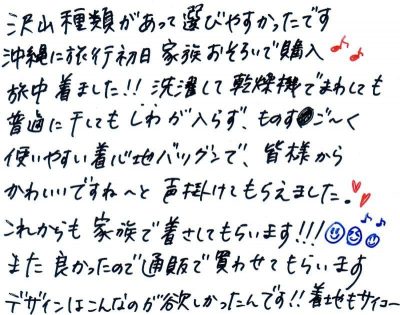 沢山種類があって選びやすかったです
沖縄に旅行初日家族おそろいで購入♪♪
旅中着ました!!洗濯して乾燥機でまわしても
普通に干してもしわが入らず、ものすご〜く
使いやすい着心地バツグンで、皆様から
かわいいですね〜と声掛けてもらえました。♥♥
これからも家族で着さしてもらいます!!!☺☺☺♪♪
また良かったので通販で買わせてもらいます
デザインはこんなのが欲しかったんです!!着地もサイコー